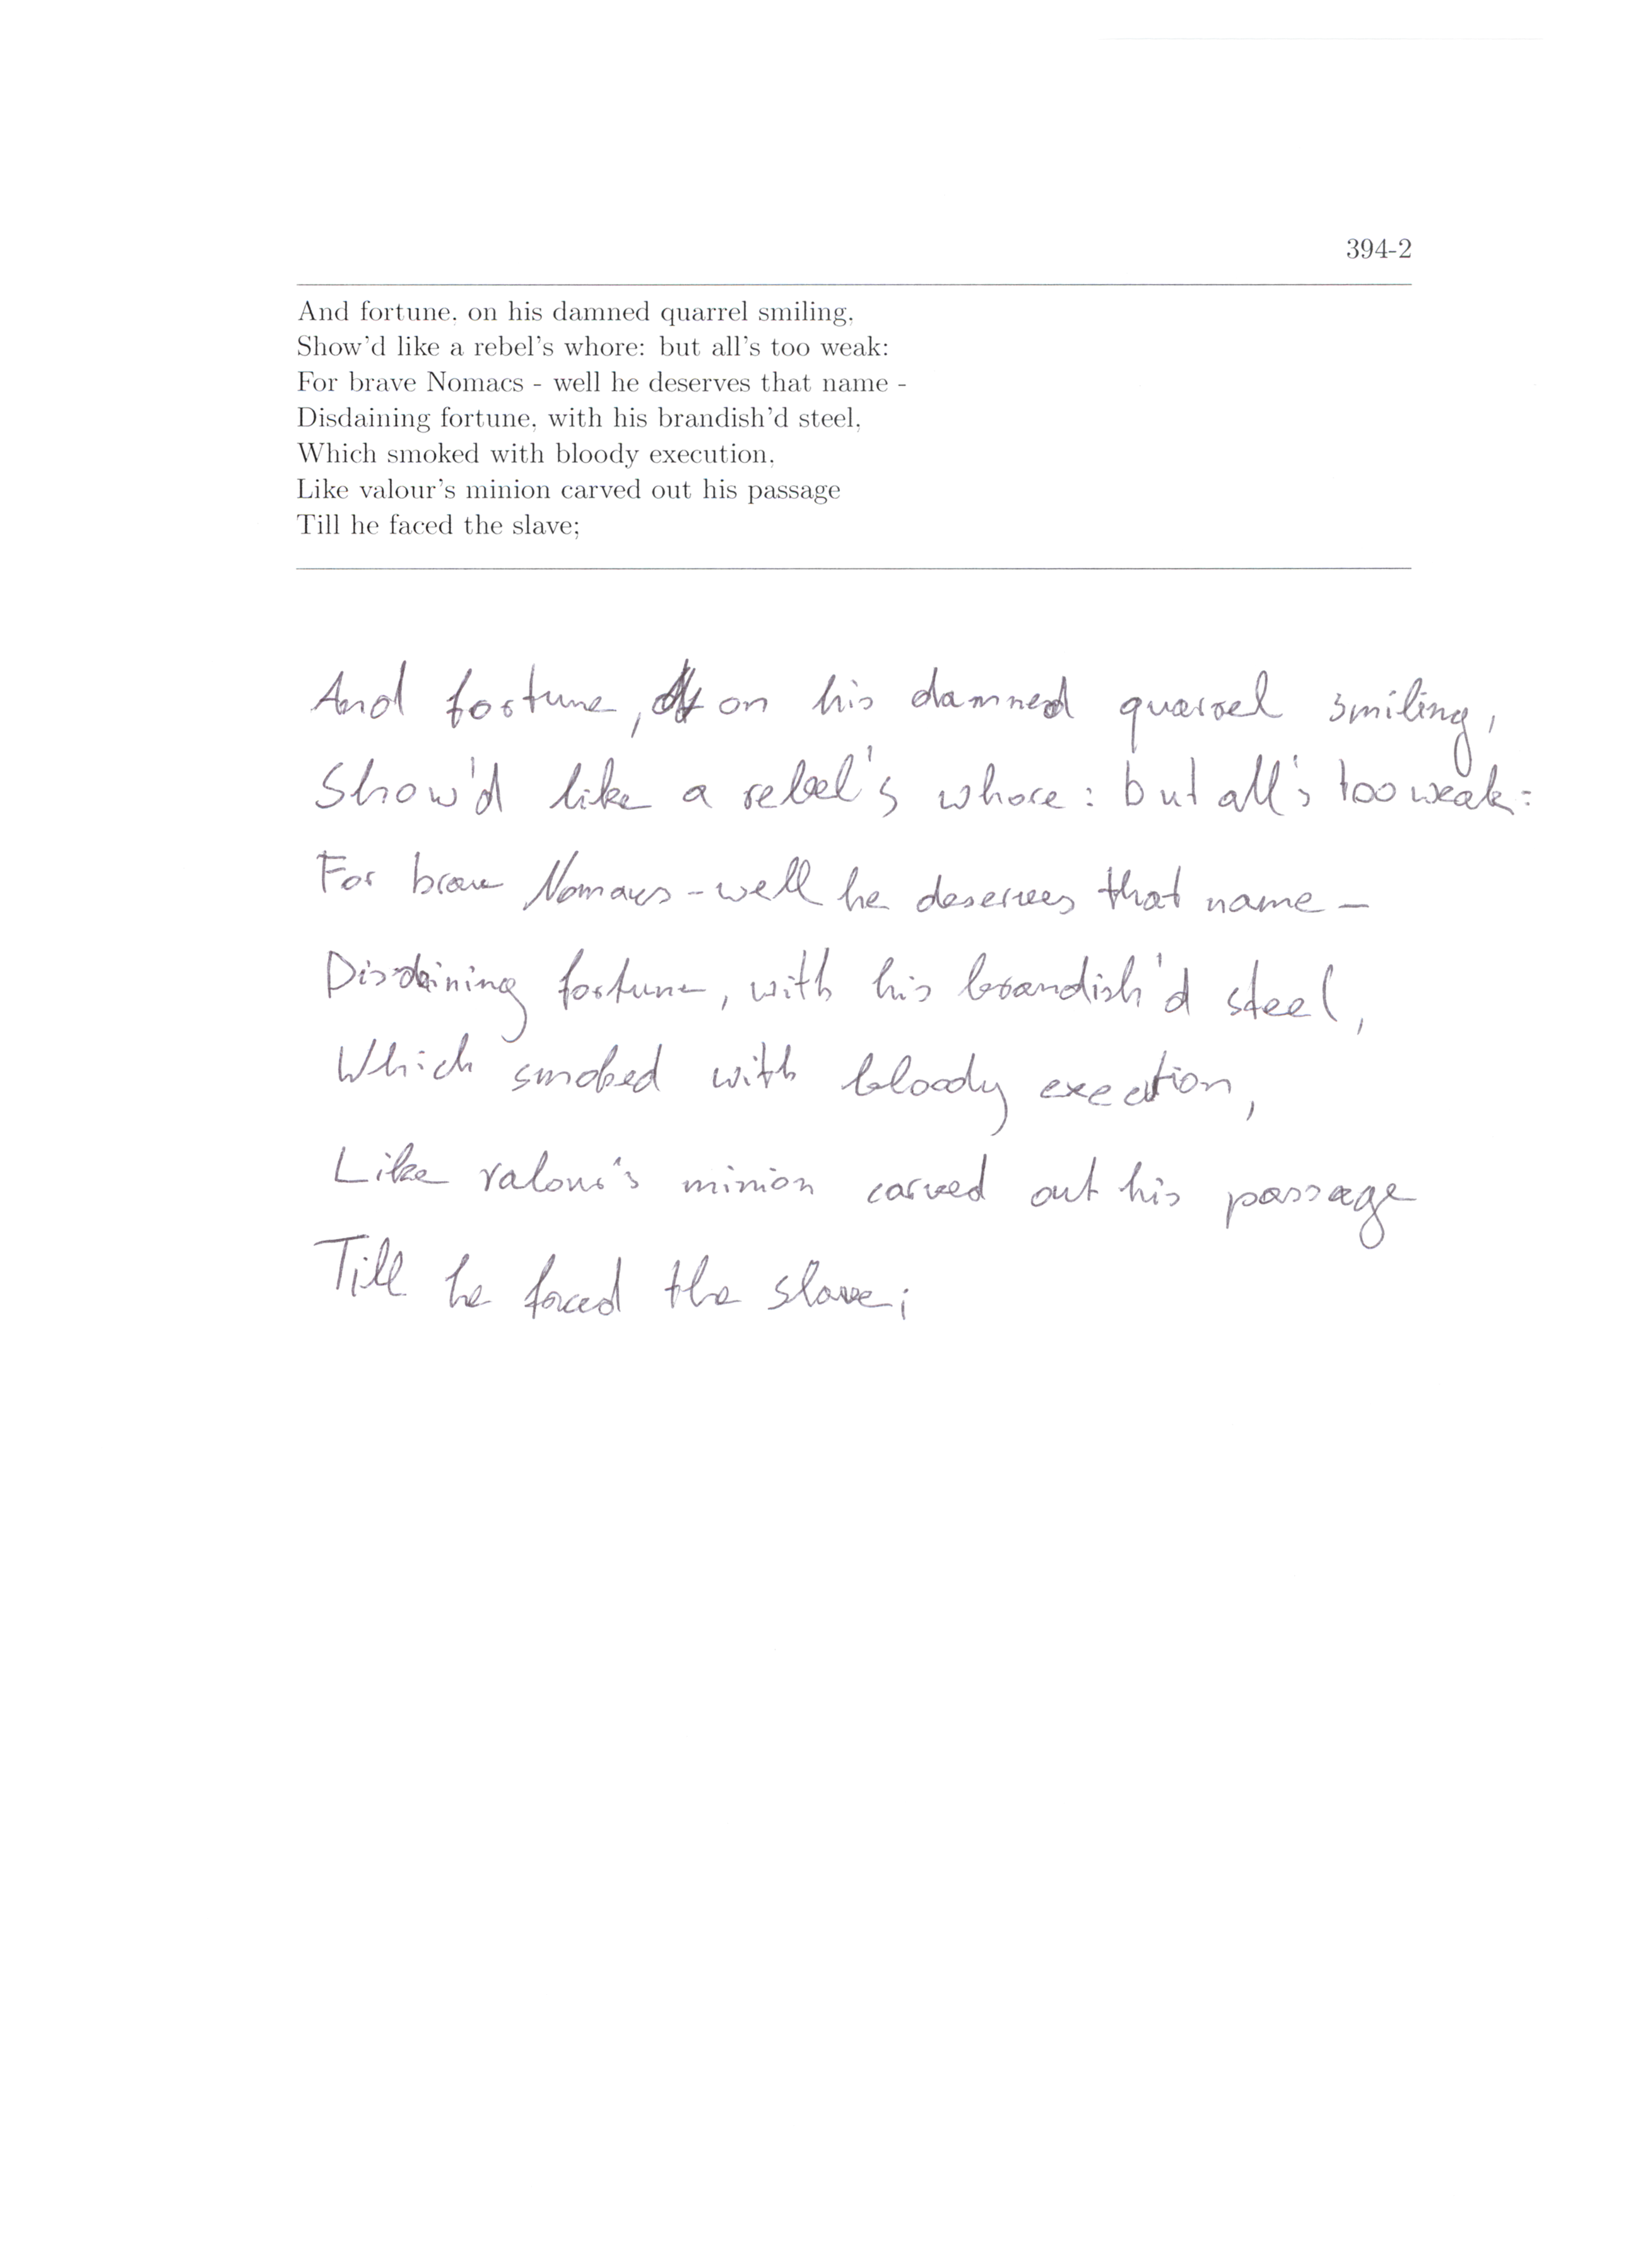 394-2
And fortune, on his damned quarrel smiling,
Show'd like a rebel's whore: but all's too weak:
For brave Nomacs - well he deserves that name -
Disdaining fortune, with his brandish'd steel,
Which smoked with bloody execution,
Like valour's minion carved out his passage
Till he faced the slave;
And fortune, on his damned quarrel smiling,
Show'd like a rebel's whore: but all's too weak:
For brave Nomacs - well he deserves that name -
Disdaining fortune, with his brandish'd steel,
Which smoked with bloody exection,
Like valour's minion carved out his passage
Till he faced the slave;